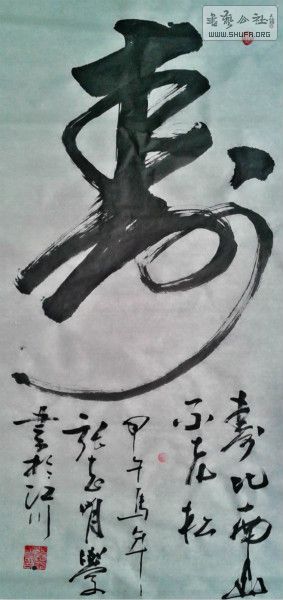 書藝公社
WWW.SHUFA.ORG
寿
寿比南山
不老松
甲午馬年
張志明學
書於江川